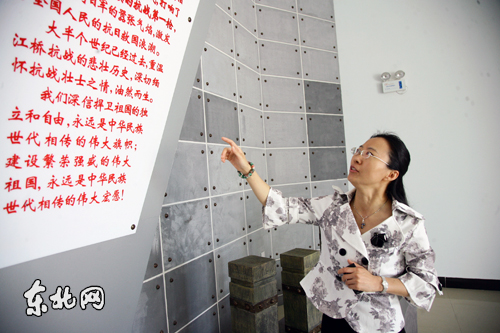 抗战第一枪
日军的嚣张气焰,激发
全国人民的抗日救国浪潮。
大半个世纪已经过去,重温
江桥抗战的悲壮历史,深切缅
怀抗战壮士之情,油然而生。
我们深信捍卫祖国的独
立和自由,永远是中华民族
世代相传的伟大旗帜;
建设繁荣强盛的伟大
祖国,永远是中华民族
世代相传的伟大宏愿!
东北网